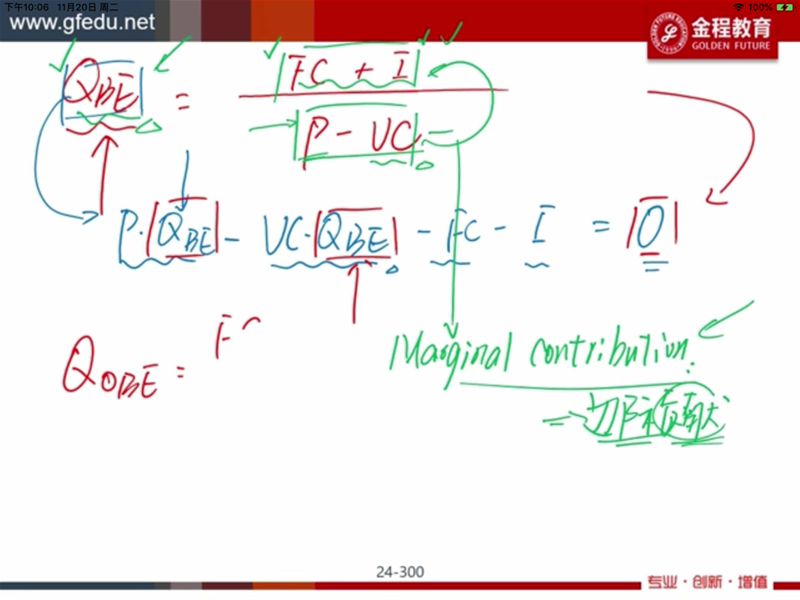 下午10:06 11月20日 周二 100%
www.gfedu.net
金程教育
GOLDEN FUTURE
QBE = FC + I
P - VC
P·QBE - VC·QBE - FC - I = 0
QOBE = FC
Marginal contribution.
⇒ 边际贡献
24-300
专业·创新·增值